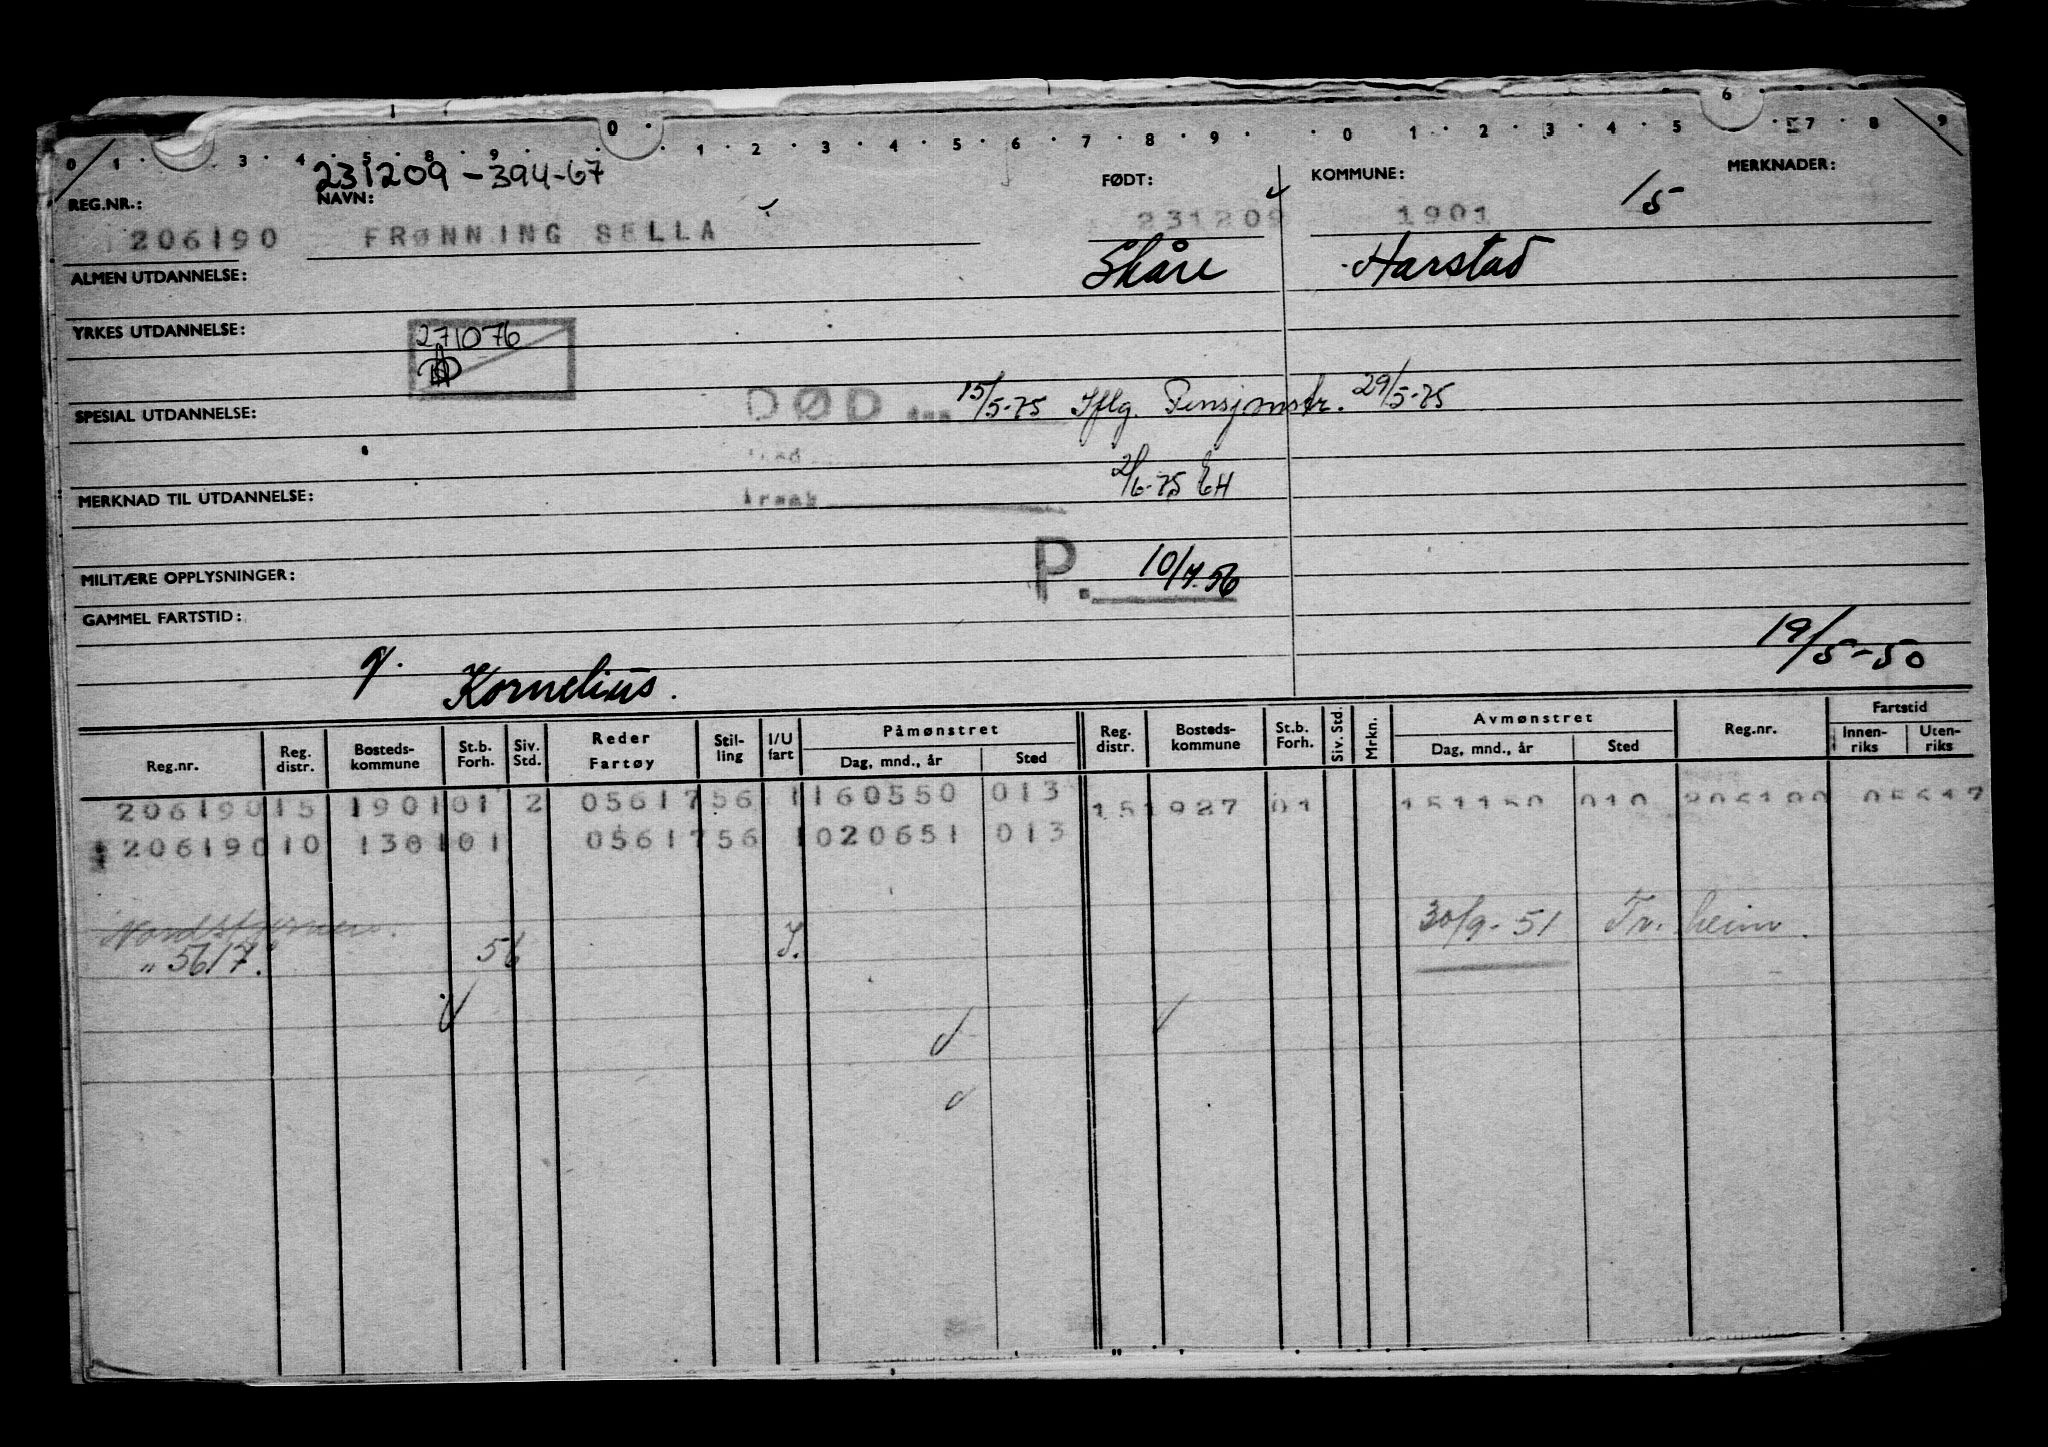 0 1 3 4 5 8 9 0 1 2 3 4 5 6 7 8 9 0 1 2 3 4 5 6 7 8 9
231209-394-67
REG.NR.: NAVN: FØDT: KOMMUNE: MERKNADER:
206190 FRØNNING SELLA 231209 1901 15
Skåre Harstad
ALMEN UTDANNELSE:
YRKES UTDANNELSE:
271076
SPESIAL UTDANNELSE: DØD den 15/5-75 Iflg. Pensjonstr. 29/5-75
MERKNAD TIL UTDANNELSE: Årsak 2/6-75 EH
MILITÆRE OPPLYSNINGER: P. 10/7.56
GAMMEL FARTSTID:
19/5-50
g. Kornelius.
Reg.nr. Reg. distr. Bosteds-kommune St.b. Forh. Siv. Std. Reder Fartøy Stil-ling I/U fart Påmønstret Dag, mnd., år Sted Reg. distr. Bosteds-kommune St.b. Forh. Siv. Std. Mrkn. Avmønstret Dag, mnd., år Sted Reg.nr. Fartstid Innen-riks Uten-riks
206190 15 1901 01 2 05617 56 1 160550 013 15 1927 01 151150 010 206190 05617
206190 10 1301 01 05617 56 1 020651 013
Nordstjernen. 30/9-51 Tr.heim.
" 5617. 56 I.